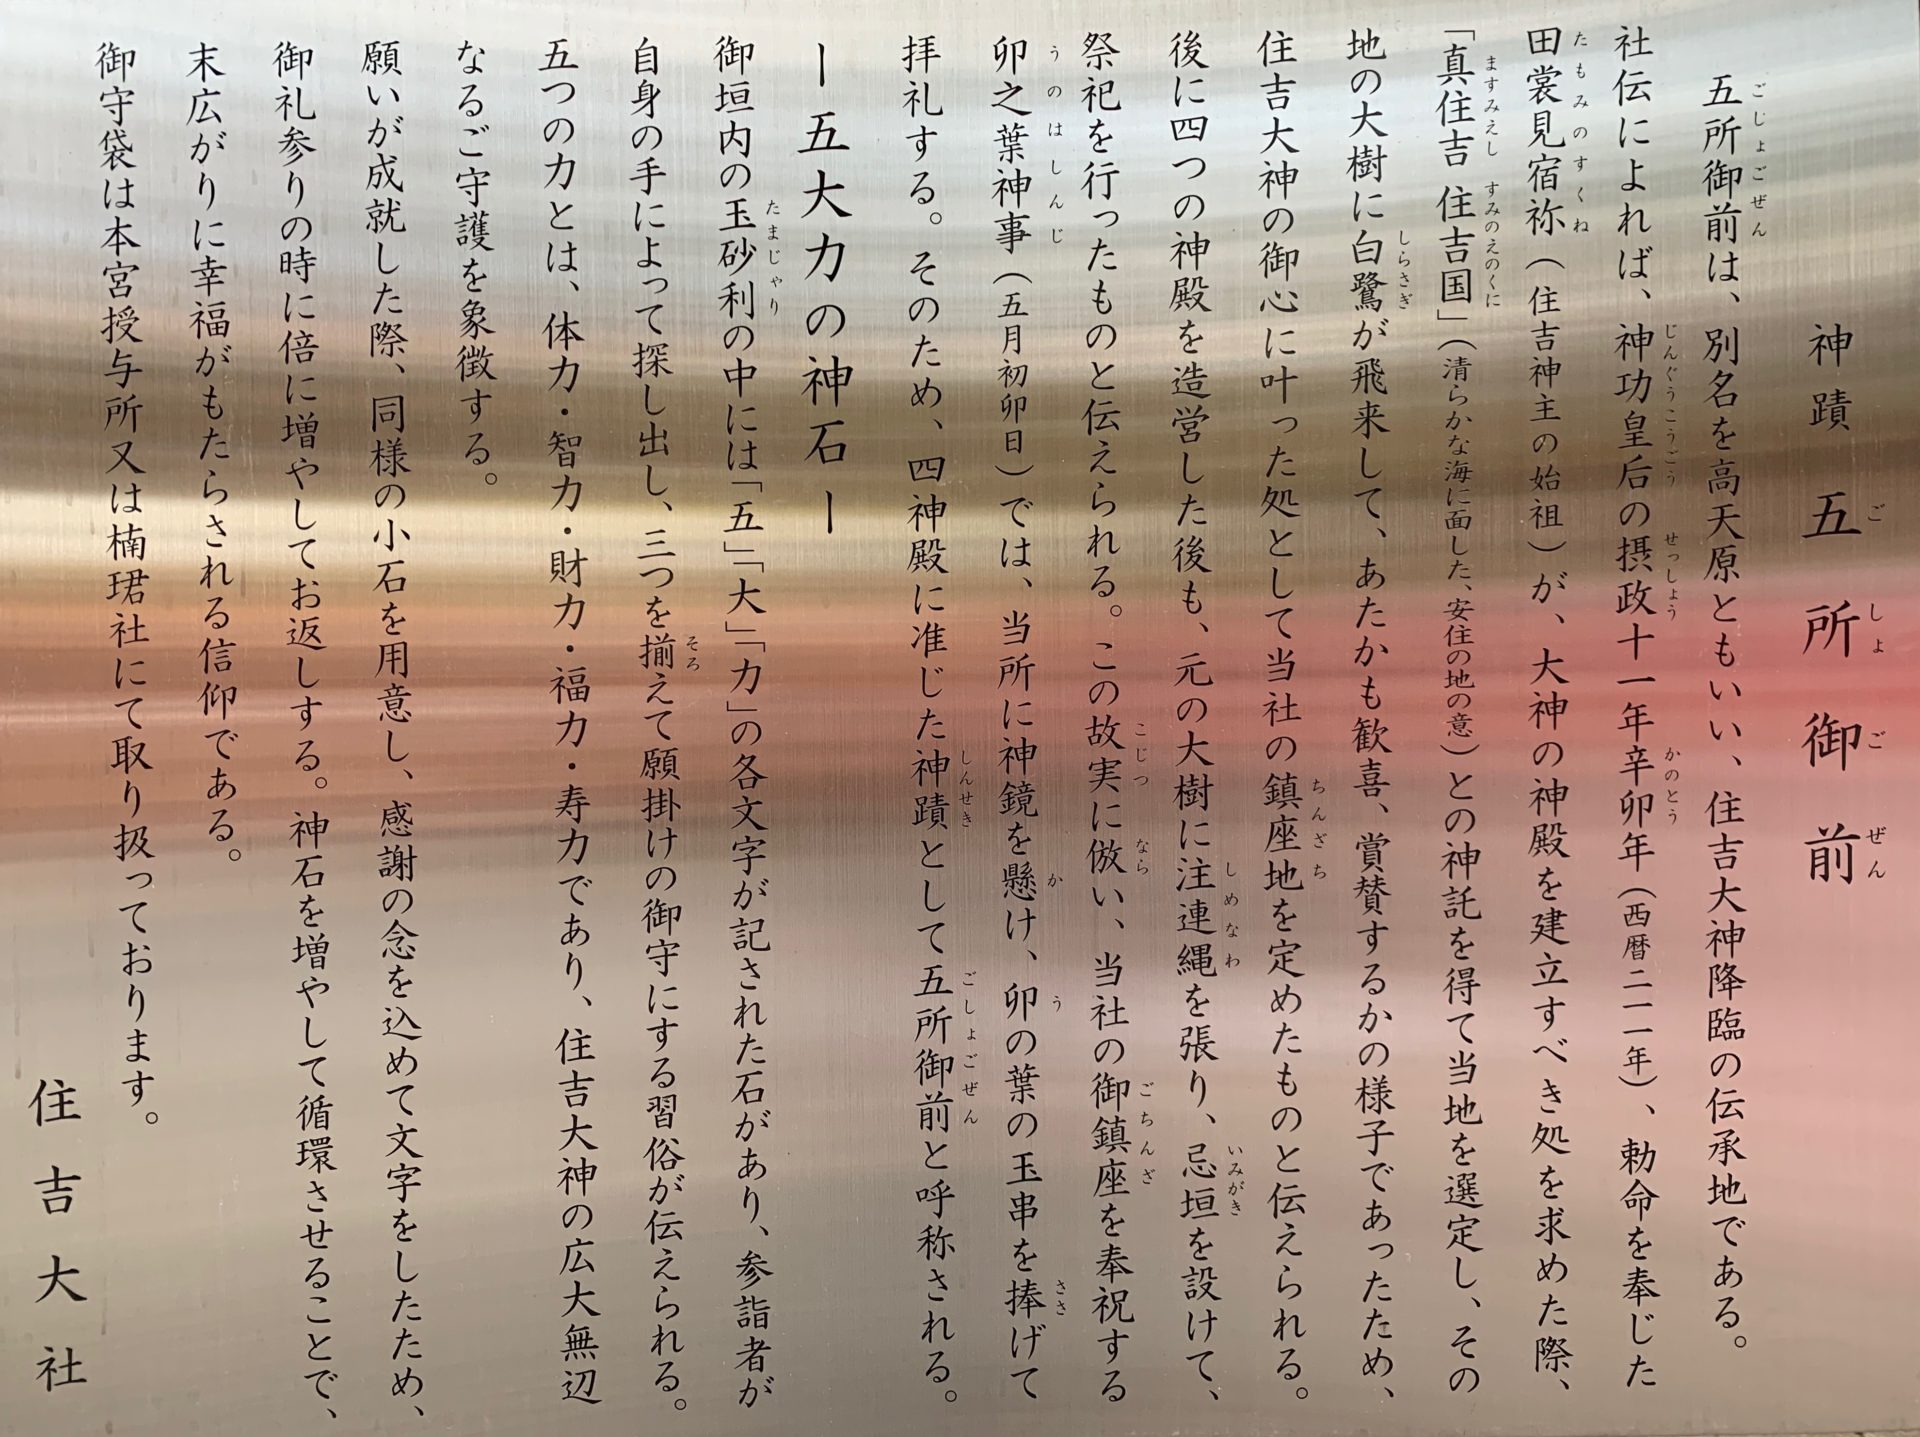 神蹟 五所御前
五所御前は、別名を高天原ともいい、住吉大神降臨の伝承地である。
社伝によれば、神功皇后の摂政十一年辛卯年（西暦二一一年）、勅命を奉じた
田裳見宿祢（住吉神主の始祖）が、大神の神殿を建立すべき処を求めた際、
「真住吉 住吉国」（清らかな海に面した、安住の地の意）との神託を得て当地を選定し、その
地の大樹に白鷺が飛来して、あたかも歓喜、賞賛するかの様子であったため、
住吉大神の御心に叶った処として当社の鎮座地を定めたものと伝えられる。
後に四つの神殿を造営した後も、元の大樹に注連縄を張り、忌垣を設けて、
祭祀を行ったものと伝えられる。この故実に倣い、当社の御鎮座を奉祝する
卯之葉神事（五月初卯日）では、当所に神鏡を懸け、卯の葉の玉串を捧げて
拝礼する。そのため、四神殿に准じた神蹟として五所御前と呼称される。
ー五大力の神石ー
御垣内の玉砂利の中には「五」「大」「力」の各文字が記された石があり、参詣者が
自身の手によって探し出し、三つを揃えて願掛けの御守にする習俗が伝えられる。
五つの力とは、体力・智力・財力・福力・寿力であり、住吉大神の広大無辺
なるご守護を象徴する。
願いが成就した際、同様の小石を用意し、感謝の念を込めて文字をしたため、
御礼参りの時に倍に増やしてお返しする。神石を増やして循環させることで、
末広がりに幸福がもたらされる信仰である。
御守袋は本宮授与所又は楠珺社にて取り扱っております。
住吉大社